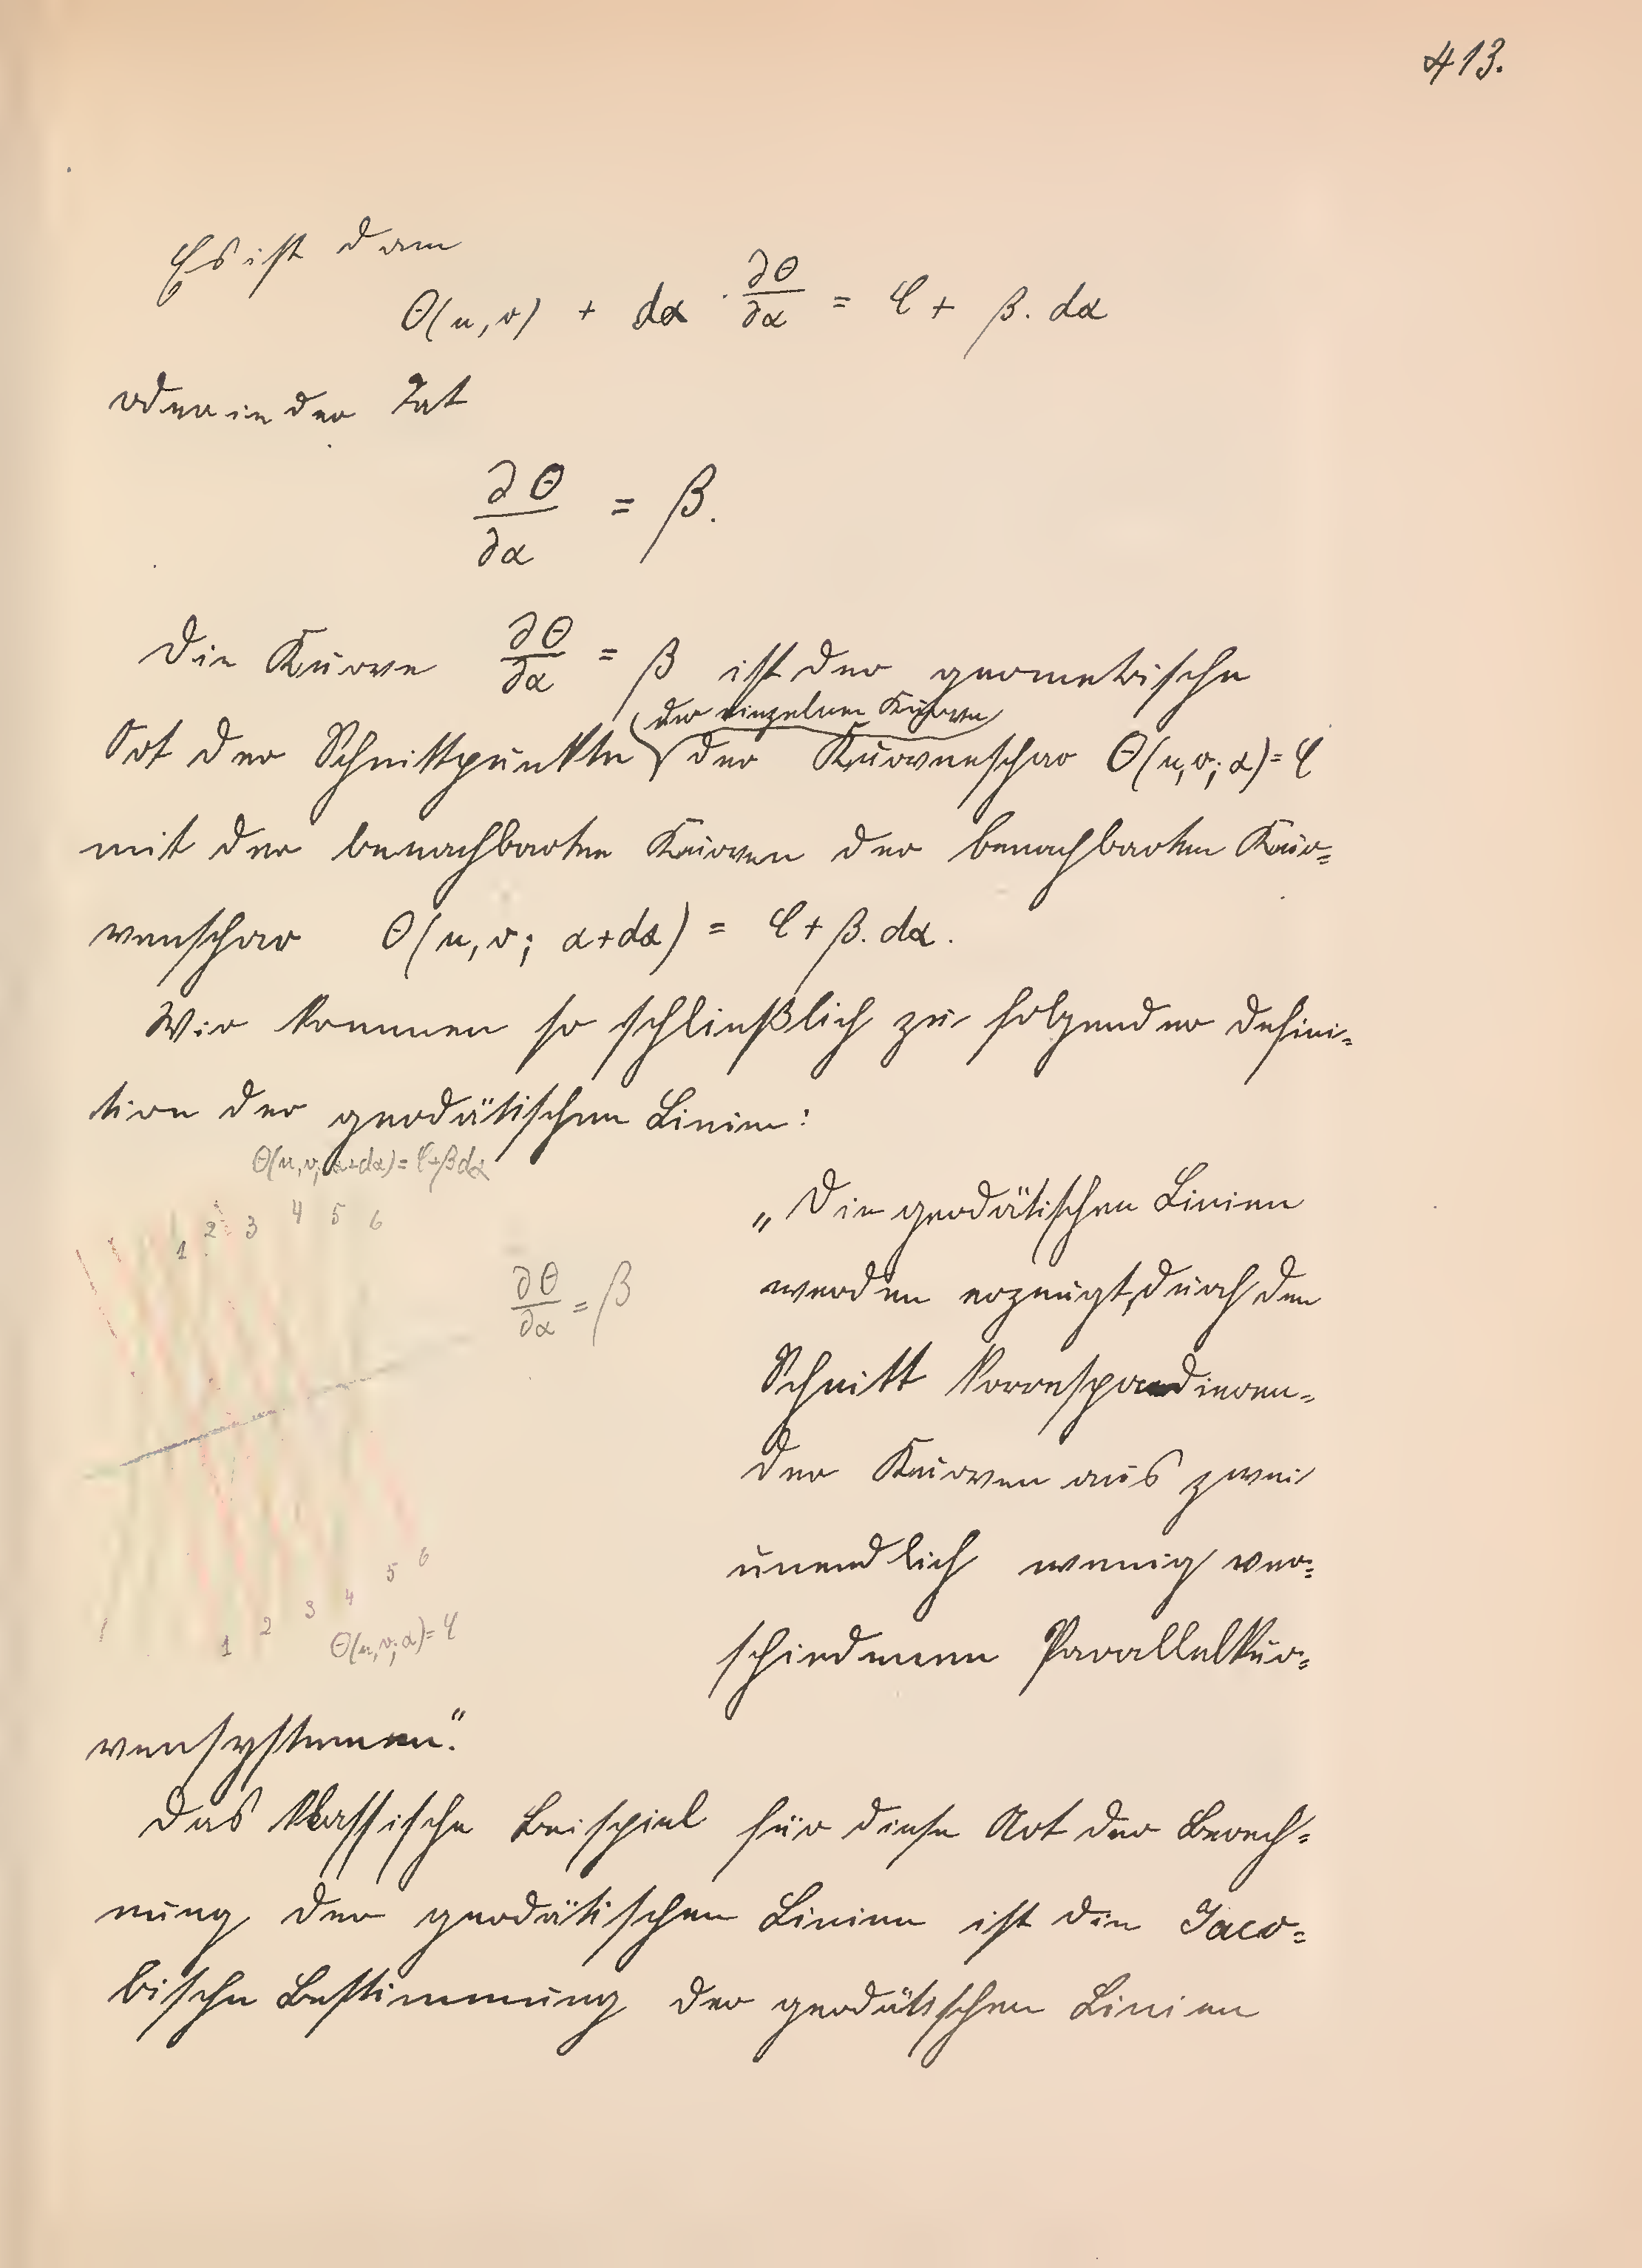 413.
Es ist dann
Θ(u,v) + dα · ∂Θ/∂α = C + β. dα
oder in der Tat
∂Θ/∂α = β.
Die Kurve ∂Θ/∂α = β ist der geometrische
der einzelnen Kurven
Ort der Schnittpunkte der Kurvenschar Θ(u,v; α) = C
mit der benachbarten Kurven der benachbarten Kur=
venschar Θ(u,v; α+dα) = C + β. dα.
Wir kommen so schließlich zu folgender Defini=
tion der geodätischen Linien:
Θ(u,v; α+dα) = C+βdα
1 2 3 4 5 6
∂Θ/∂α = β
„Die geodätischen Linien
werden erzeugt, durch den
Schnitt korrespondieren=
der Kurven aus zwei
unendlich wenig ver=
schiedenen Parallelkur=
1 2 3 4 5 6
Θ(u,v; α) = C
vensystemen."
Das klassische Beispiel für diese Art der Berech=
nung der geodätischen Linien ist die Jaco=
bische Bestimmung der geodätischen Linien